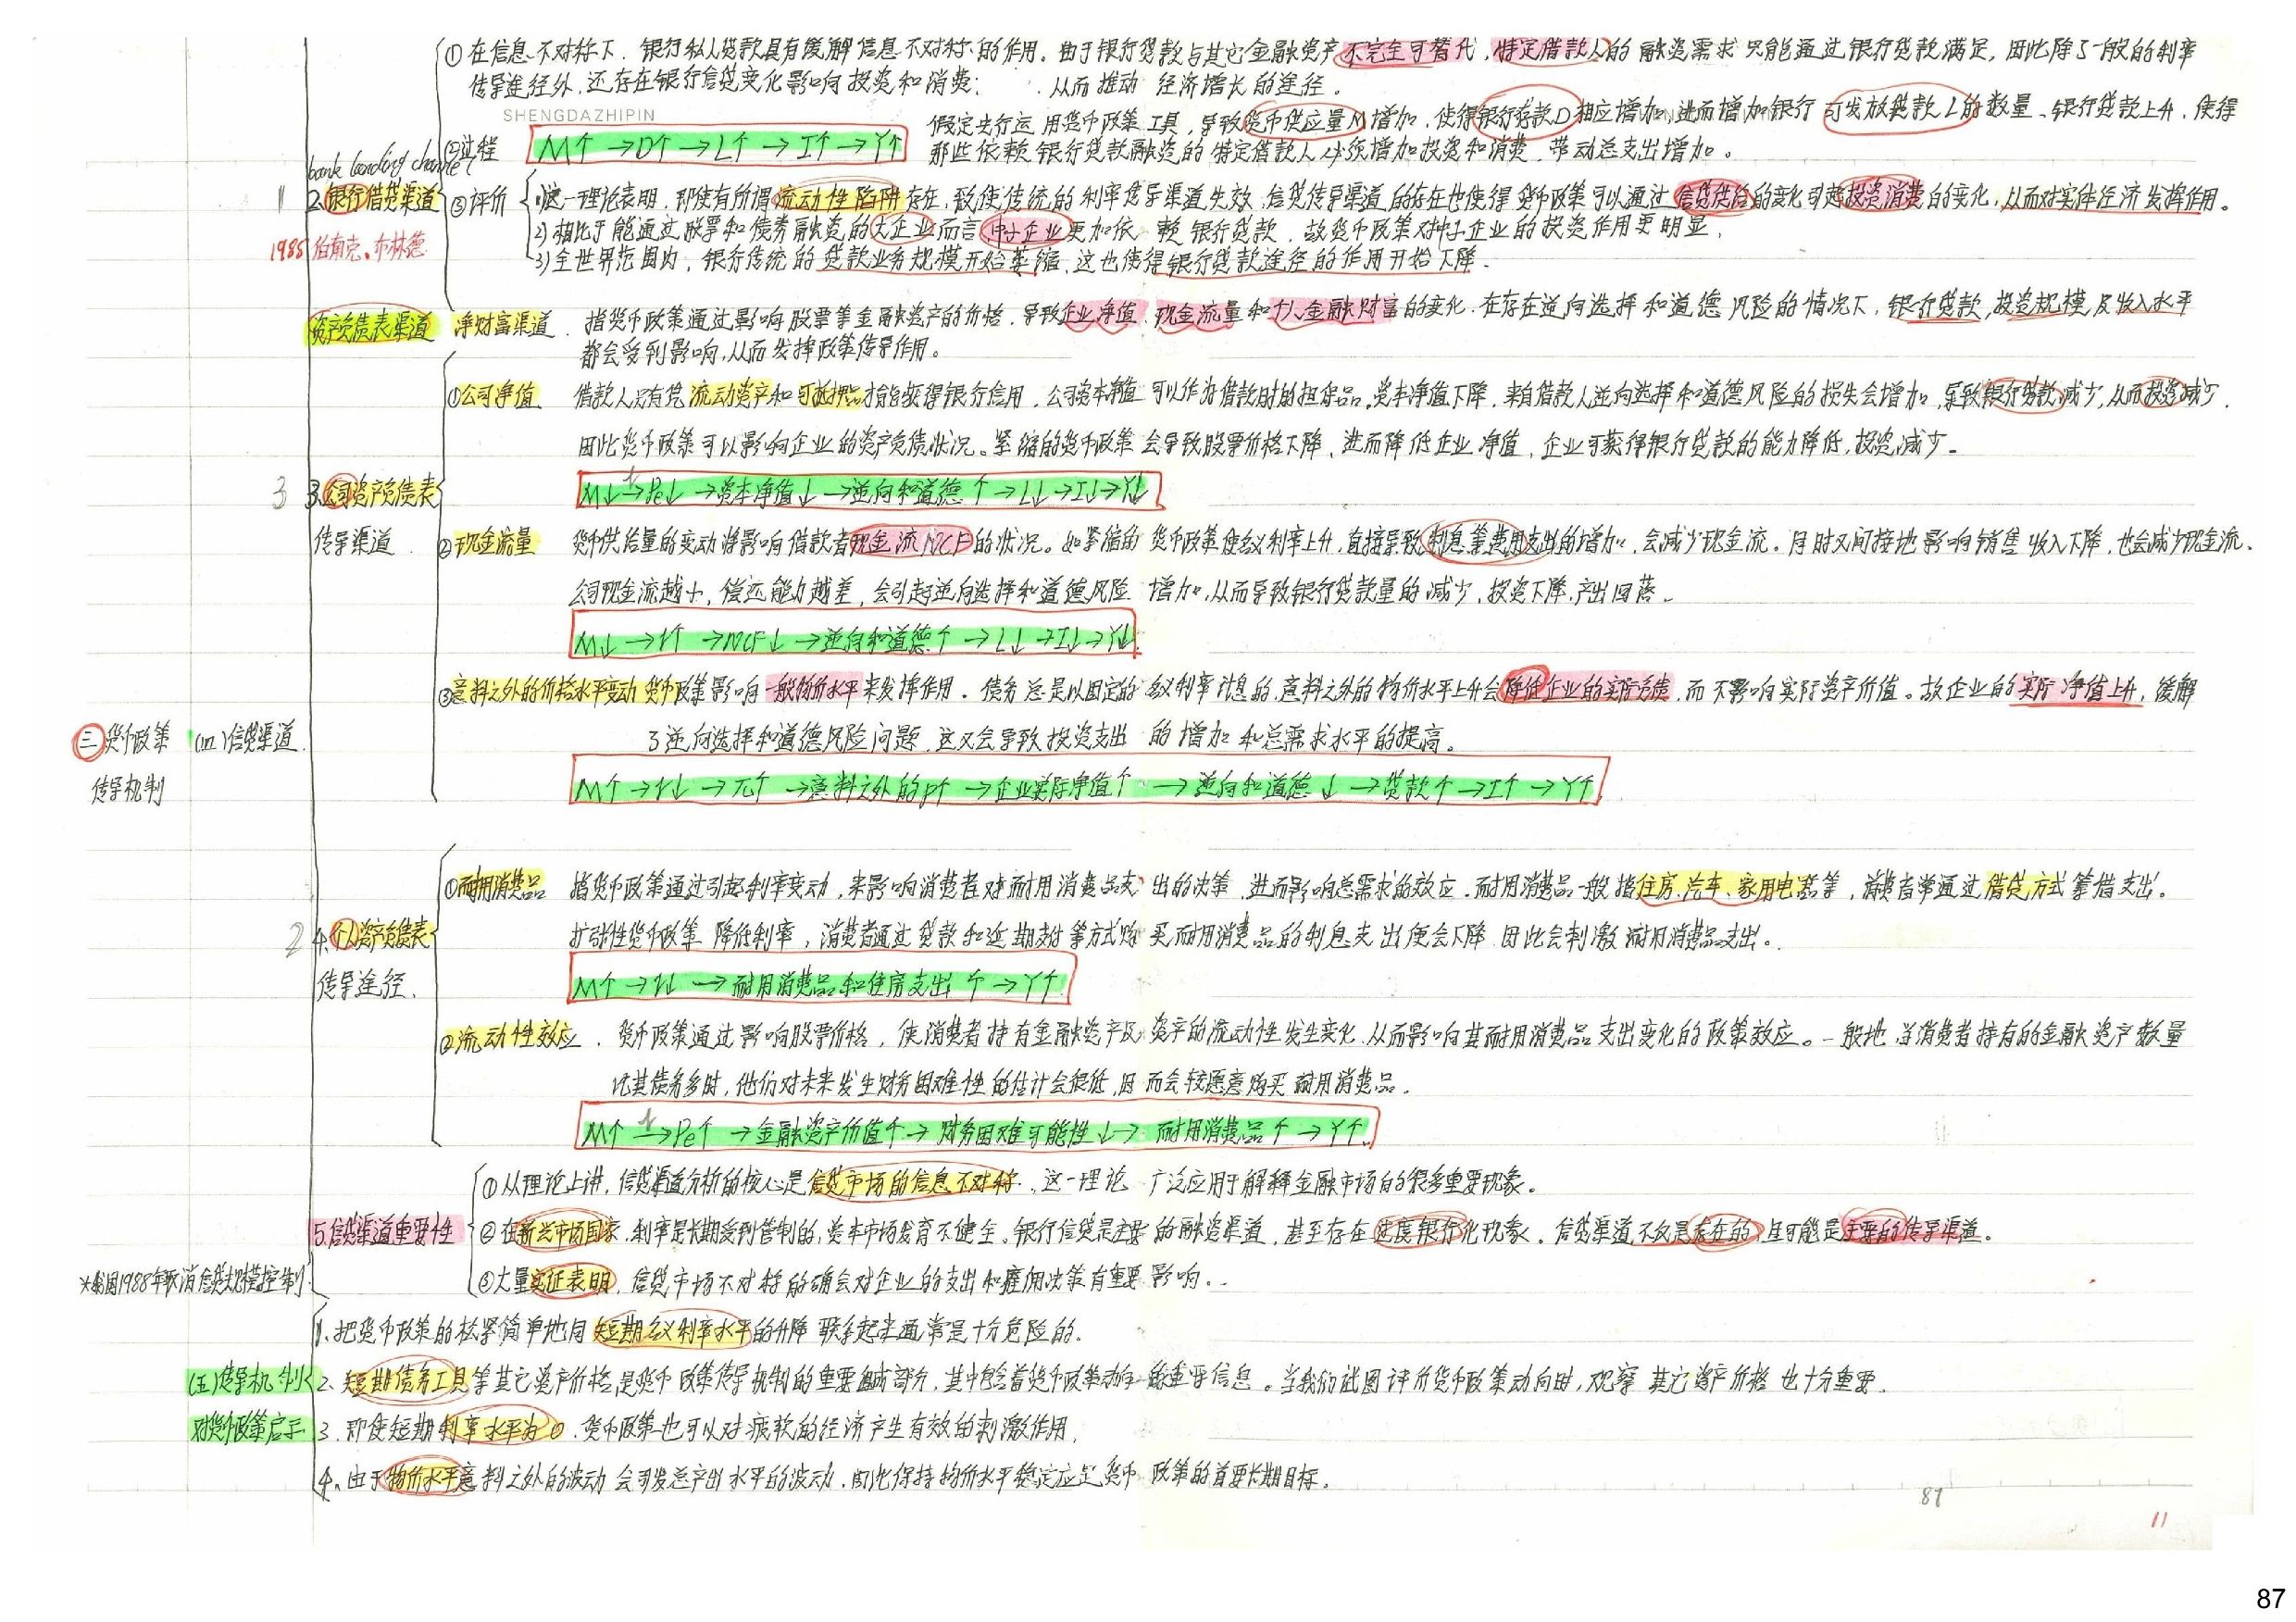 ① 在信息不对称下，银行私人贷款具有缓解信息不对称的作用。由于银行贷款与其它金融资产不完全可替代，特定借款人的融资需求只能通过银行贷款满足，因此除了一般的利率
传导途径外，还存在银行信贷变化影响投资和消费，从而推动经济增长的途径。
SHENGDAZHIPIN
假定央行运用货币政策工具，导致货币供应量M增加，使得银行存款D相应增加，进而增加银行可发放贷款L的数量、银行贷款上升，使得
②过程 M↑→D↑→L↑→I↑→Y↑ 那些依赖银行贷款融资的特定借款人必须增加投资和消费，带动总支出增加。
bank lending channel
1 2.银行借贷渠道 ③评价 1)这一理论表明，即使有所谓流动性陷阱存在，致使传统的利率传导渠道失效，信贷传导渠道的存在也使得货币政策可以通过信贷供给的变化引起投资消费的变化，从而对实体经济发挥作用。
2)相比于能通过股票和债券融资的大企业而言，中小企业更加依赖银行贷款，故货币政策对中小企业的投资作用更明显。
1985 伯南克、布林德
3)全世界范围内，银行传统的贷款业务规模开始萎缩，这也使得银行贷款途径的作用开始下降.
资产负债表渠道 净财富渠道. 指货币政策通过影响股票等金融资产的价格，导致企业净值、现金流量和个人金融财富的变化，在存在逆向选择和道德风险的情况下，银行贷款，投资规模及收入水平
都会受到影响，从而发挥政策传导作用。
①公司净值 借款人只有凭流动资产和可抵押品才能获得银行信用，公司资本净值可以作为借款时的担保品。资本净值下降，来自借款人逆向选择和道德风险的损失会增加，导致银行贷款减少，从而投资减少.
因此货币政策可以影响企业的资产负债状况。紧缩的货币政策会导致股票价格下降，进而降低企业净值，企业可获得银行贷款的能力降低，投资减少。
3 3.公司资产负债表 M↓→Pe↓→资本净值↓→逆向和道德↑→L↓→I↓→Y↓
传导渠道. ②现金流量 货币供给量的变动将影响借款者现金流NCF的状况。如紧缩的货币政策使名义利率上升，直接导致利息等费用支出的增加，会减少现金流。同时又间接地影响销售收入下降，也会减少现金流.
公司现金流越少，偿还能力越差，会引起逆向选择和道德风险增加，从而导致银行贷款量的减少，投资下降，产出回落.
M↓→r↑→NCF↓→逆向和道德↑→L↓→I↓→Y↓
③意料之外的价格水平变动 货币政策影响一般物价水平来发挥作用. 债务总是以固定的名义利率计息的，意料之外的物价水平上升会降低企业的实际负债，而不影响实际资产价值。故企业的实际净值上升，缓解
三 货币政策 (四)信贷渠道. 了逆向选择和道德风险问题，这又会导致投资支出的增加和总需求水平的提高。
传导机制 M↑→r↓→π↑→意料之外的p↑→企业实际净值↑→逆向和道德↓→贷款↑→I↑→Y↑
①耐用消费品 指货币政策通过引起利率变动，来影响消费者对耐用消费品支出的决策，进而影响总需求的效应. 耐用消费品一般指住房、汽车、家用电器等，消费者常通过借贷方式筹借支出.
2 4.个人资产负债表 扩张性货币政策降低利率，消费者通过贷款和延期支付等方式购买耐用消费品的利息支出便会下降，因此会刺激耐用消费品支出。
传导途径. M↑→r↓→耐用消费品和住房支出↑→Y↑
②流动性效应. 货币政策通过影响股票价格，使消费者持有金融资产及资产的流动性发生变化，从而影响其耐用消费品支出变化的政策效应。一般地，当消费者持有的金融资产数量
比其债务多时，他们对未来发生财务困难性的估计会很低，因而会较愿意购买耐用消费品.
M↑→Pe↑→金融资产价值↑→财务困难可能性↓→耐用消费品↑→Y↑
①从理论上讲，信贷渠道分析的核心是信贷市场的信息不对称，这一理论广泛应用于解释金融市场的很多重要现象。
5.信贷渠道重要性 ②在新兴市场国家，利率是长期受到管制的，资本市场发育不健全，银行信贷是主要的融资渠道，甚至存在过度银行化现象。信贷渠道不仅是存在的，且可能是主要的传导渠道。
*我国1988年取消信贷规模控制 ③大量实证表明，信贷市场不对称的确会对企业的支出和雇佣决策有重要影响.
1.把货币政策的松紧简单地同短期名义利率水平的升降联系起来通常是十分危险的.
(五)传导机制 2、短期债务工具等其它资产价格是货币政策传导机制的重要组成部分，其中包含着货币政策动向的重要信息。当我们试图评价货币政策动向时，观察其它资产价格也十分重要.
对货币政策启示 3.即使短期利率水平为0，货币政策也可以对疲软的经济产生有效的刺激作用.
4.由于物价水平意料之外的波动会引发总产出水平的波动，因此保持物价水平稳定应是货币政策的首要长期目标.
87
11
87